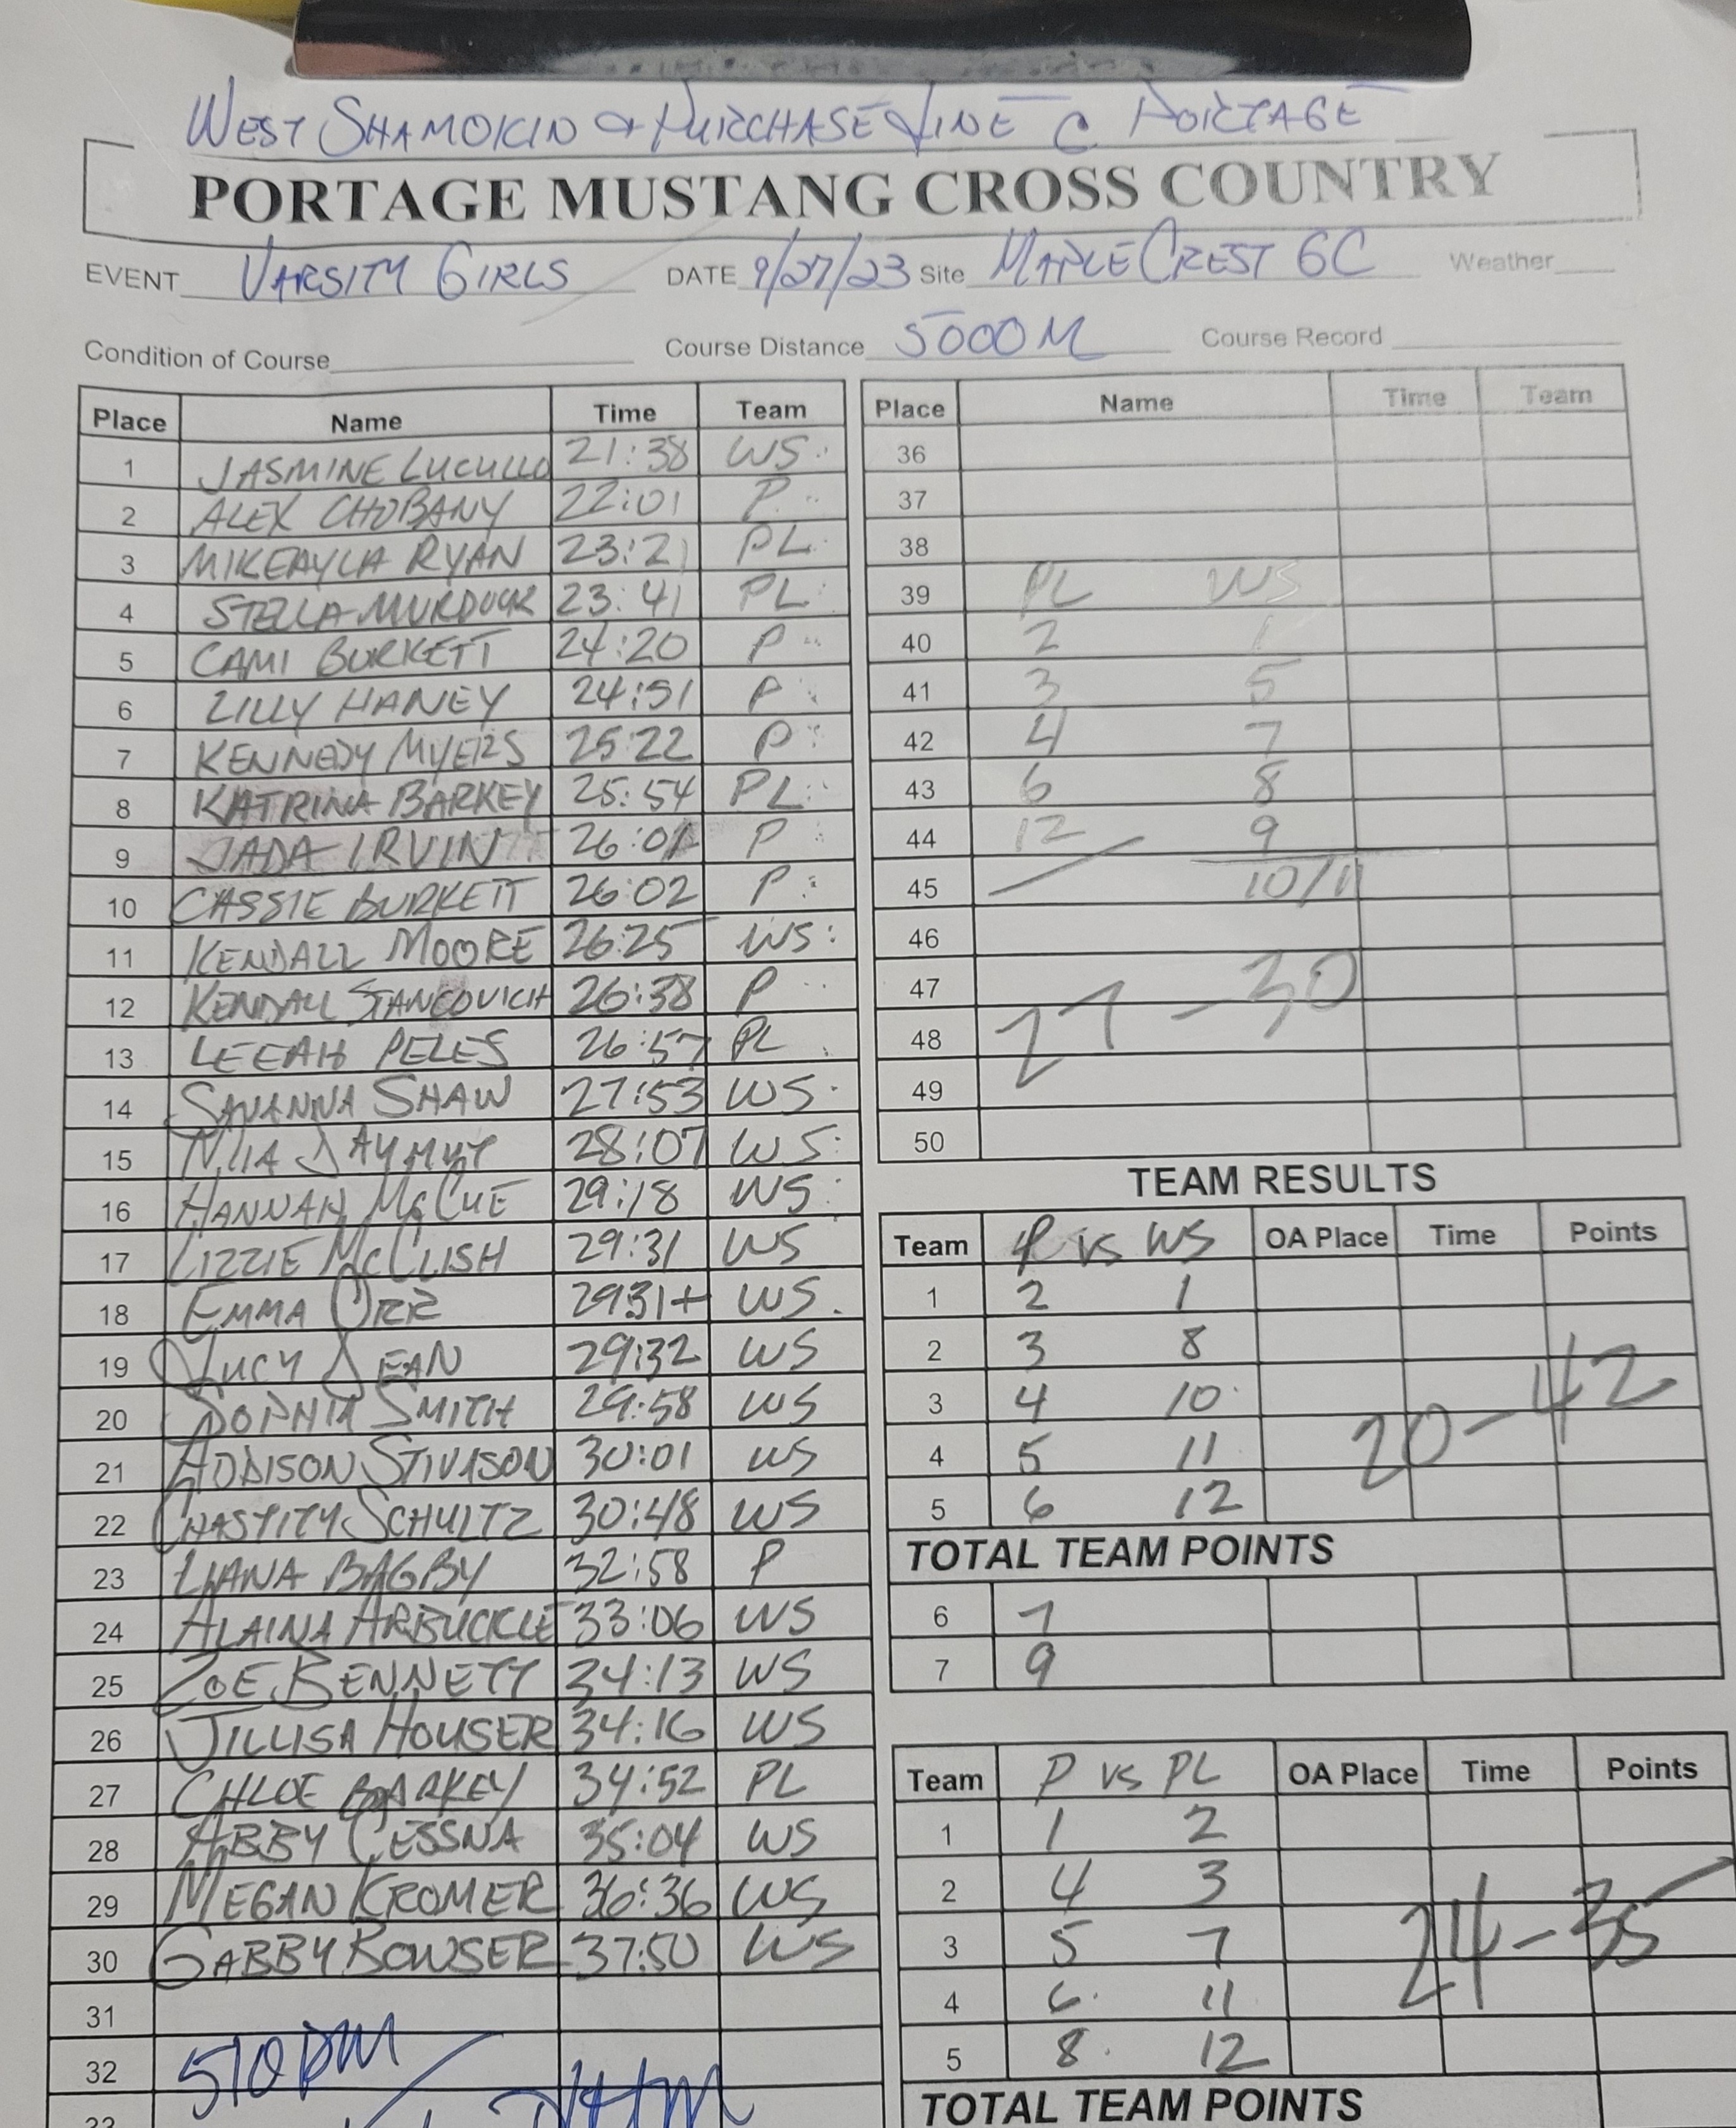 WEST SHAMOKIN & PURCHASE LINE @ PORTAGE
PORTAGE MUSTANG CROSS COUNTRY
EVENT VARSITY GIRLS DATE 9/27/23 Site MAPLE CREST GC Weather
Condition of Course Course Distance 5000 M Course Record
Place Name Time Team
1 JASMINE LUCULLO 21:38 WS
2 ALEX CHOBANY 22:01 P
3 MIKEAYLA RYAN 23:21 PL
4 STELLA MURDOCK 23:41 PL
5 CAMI BURKETT 24:20 P
6 LILLY HANEY 24:51 P
7 KENNEDY MYERS 25:22 P
8 KATRINA BARKEY 25:54 PL
9 JADA IRVIN 26:01 P
10 CASSIE BURKETT 26:02 P
11 KENDALL MOORE 26:25 WS
12 KENDALL STANCOVICH 26:38 P
13 LEEAH PELES 26:57 PL
14 SAVANNA SHAW 27:53 WS
15 28:07 WS
16 HANNAH McCUE 29:18 WS
17 LIZZIE McCLISH 29:31 WS
18 EMMA ORR 29:31+ WS
19 LUCY DEAN 29:32 WS
20 SOPHIA SMITH 29:58 WS
21 ADDISON STIVASON 30:01 WS
22 CHASTITY SCHULTZ 30:48 WS
23 LIANA BAGBY 32:58 P
24 ALAINA ARBUCKLE 33:06 WS
25 ZOE BENNETT 34:13 WS
26 JILLISA HOUSER 34:16 WS
27 CHLOE BARKEY 34:52 PL
28 ABBY CESSNA 35:04 WS
29 MEGAN KROMER 36:36 WS
30 GABBY BOWSER 37:50 WS
31
32 510 PM
33
Place Name Time Team
36
37
38
39 PL WS
40 2 1
41 3 5
42 4 7
43 6 8
44 12 9
45 10/11
46
47
48 27 - 30
49
50
TEAM RESULTS
Team P vs WS OA Place Time Points
1 2 1
2 3 8
3 4 10
4 5 11
5 6 12
20-42
TOTAL TEAM POINTS
6 7
7 9
Team P vs PL OA Place Time Points
1 1 2
2 4 3
3 5 7
4 6 11
5 8 12
24-35
TOTAL TEAM POINTS